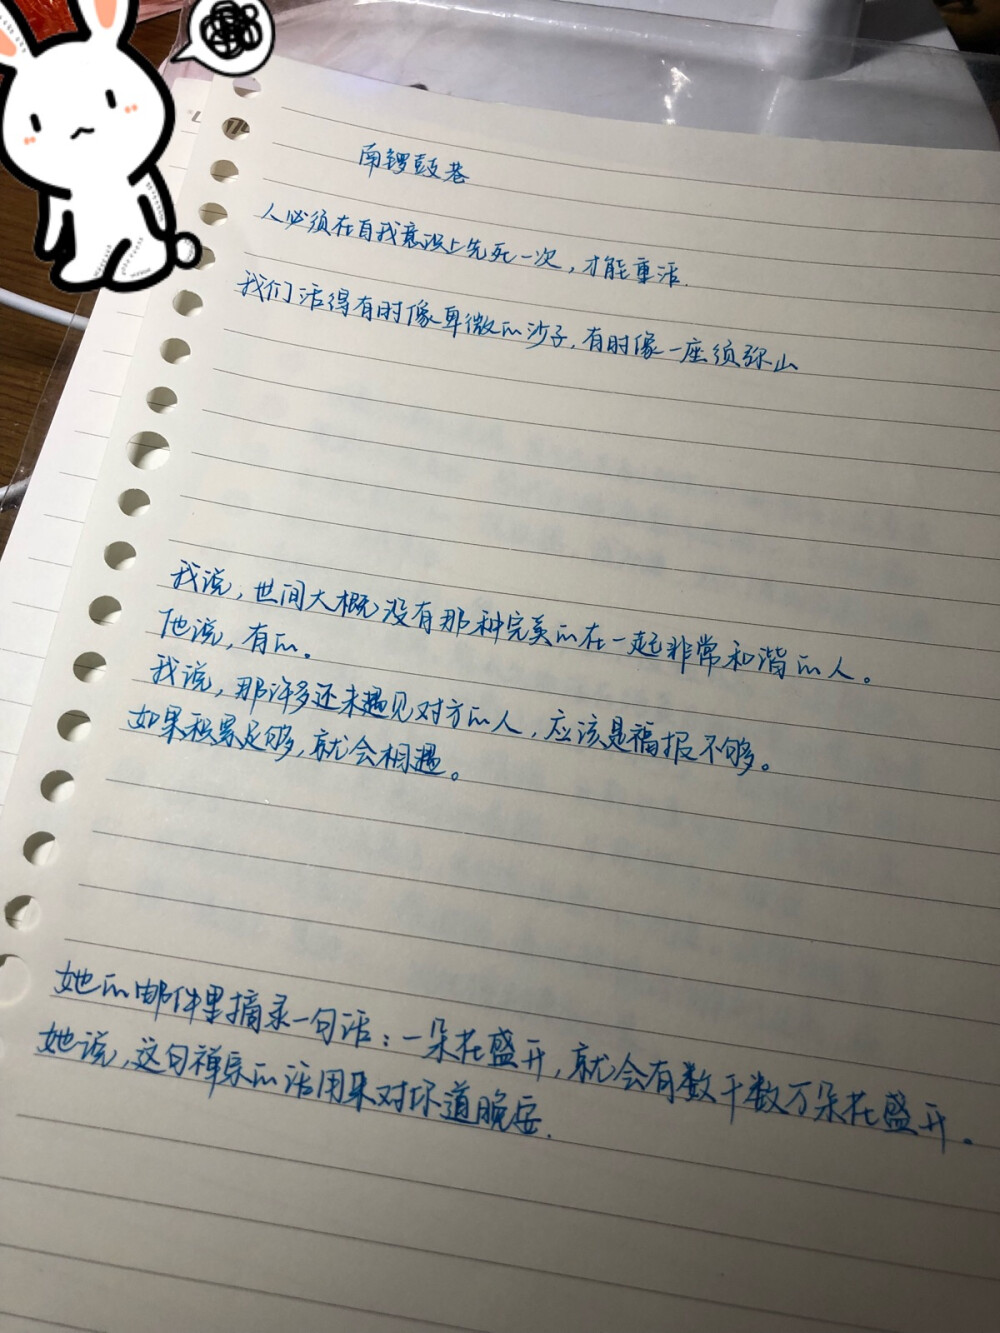 南锣鼓巷
人必须在自我意识上先死一次，才能重活.
我们活得有时像卑微的沙子，有时像一座须弥山
我说，世间大概没有那种完美的在一起非常和谐的人。
他说，有的。
我说，那许多还未遇见对方的人，应该是福报不够。
如果积累足够，就会相遇。
她的邮件里摘录一句话：一朵花盛开，就会有数千数万朵花盛开。
她说，这句禅宗的话用来对你道晚安.